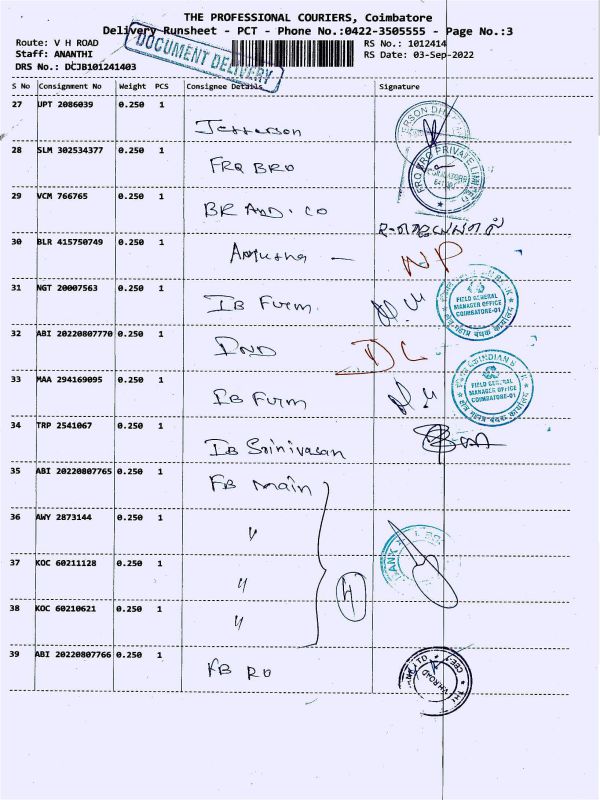 THE PROFESSIONAL COURIERS, Coimbatore
Delivery Runsheet - PCT - Phone No.:0422-3505555 - Page No.:3
Route: V H ROAD RS No.: 1012414
Staff: ANANTHI RS Date: 03-Sep-2022
DRS No.: DCJB101241403
DOCUMENT DELIVERY
S No Consignment No Weight PCS Consignee Details Signature
27 UPT 2086039 0.250 1 Jefferson
28 SLM 302534377 0.250 1 FRQ BRO
FRO BRO PRIVATE LIMITED
COIMBATORE
29 VCM 766765 0.250 1 BR And. CO
30 BLR 415750749 0.250 1 Anusha — NP
31 NGT 20007563 0.250 1 IB Furm
FIELD GENERAL
MANAGER OFFICE
COIMBATORE-01
32 ABI 20220807770 0.250 1 DND DL
33 MAA 294169095 0.250 1 IB Furm
INDIAN B
FIELD GENERAL
MANAGER OFFICE
COIMBATORE-01
34 TRP 2541067 0.250 1 IB Srinivasan
35 ABI 20220807765 0.250 1 FB Main
36 AWY 2873144 0.250 1 "
37 KOC 60211128 0.250 1 "
4
38 KOC 60210621 0.250 1 "
39 ABI 20220807766 0.250 1 FB RO
V.H.ROAD